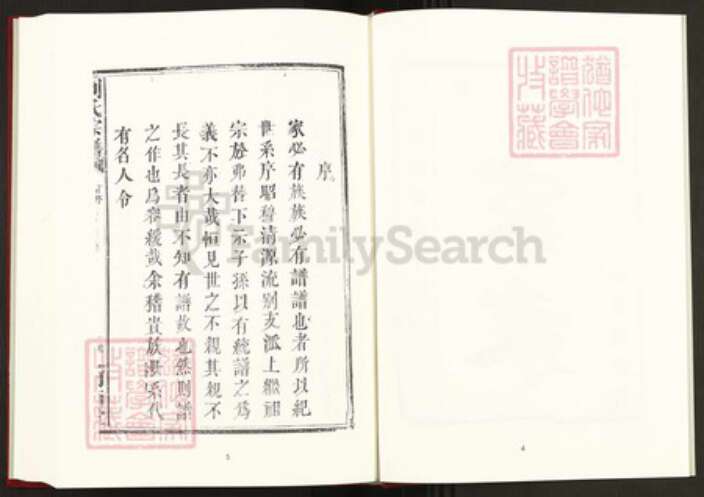 序
家必有族族必有譜譜也者所以紀
世系序昭穆清源流别支派上繼祖
宗於弗替下示子孫以有統譜之為
義不亦大哉恒見世之不親其親不
長其長者由不知有譜故也然則譜
之作也為容緩哉余稽貴族世系代
有名人令
氏宗譜
序
5
4
譜學會
收藏
FamilySearch